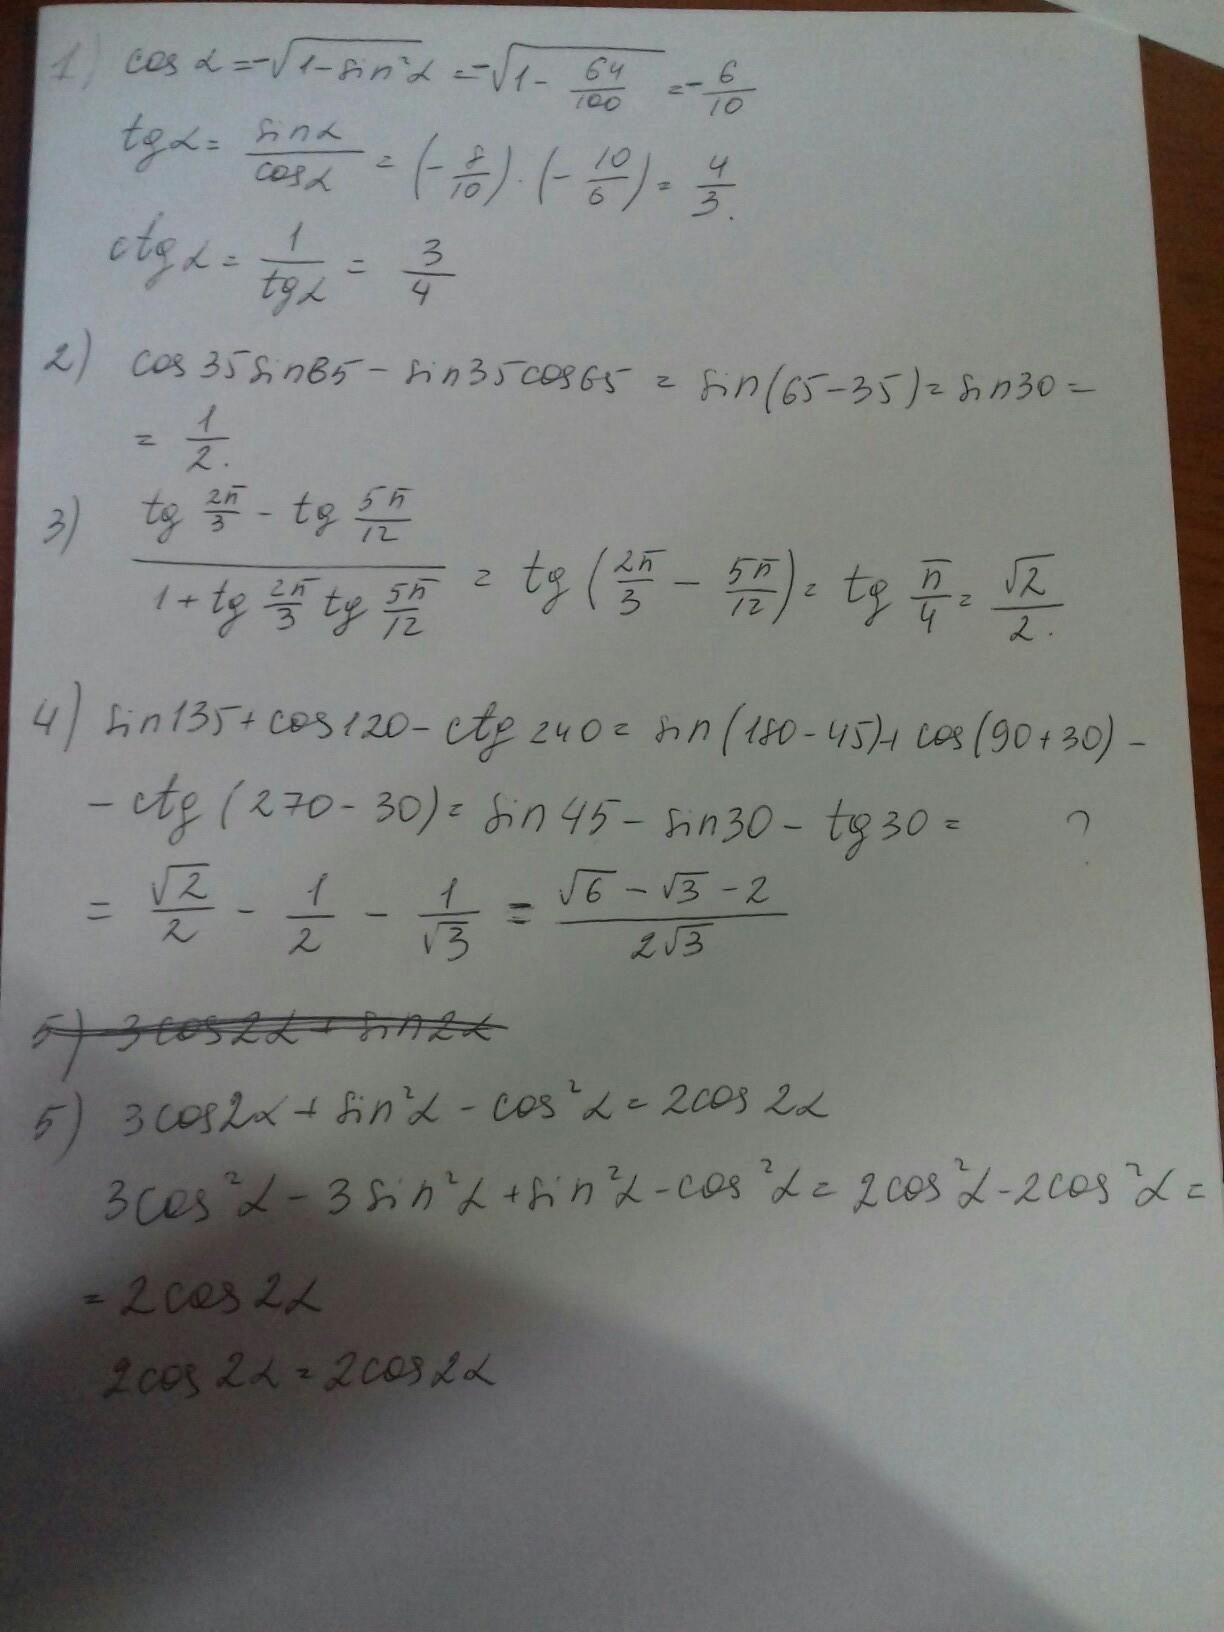 1) cos α = -√(1-sin²α) = -√(1 - 64/100) = - 6/10
tgα = sinα/cosα = (- 8/10) · (- 10/6) = 4/3.
ctgα = 1/tgα = 3/4
2) cos35sin65 - sin35cos65 = sin(65-35) = sin30 =
= 1/2.
3) (tg 2π/3 - tg 5π/12)/(1 + tg 2π/3 tg 5π/12) = tg (2π/3 - 5π/12) = tg π/4 = √2/2.
4) sin135 + cos120 - ctg 240 = sin(180-45) + cos(90+30) -
- ctg (270 - 30) = sin 45 - sin30 - tg30 = ?
= √2/2 - 1/2 - 1/√3 = (√6 - √3 - 2)/(2√3)
5) 3cos2α + sin2α
5) 3cos2α + sin²α - cos²α = 2cos2α
3cos²α - 3sin²α + sin²α - cos²α = 2cos²α - 2cos²α =
= 2cos2α
2cos2α = 2cos2α